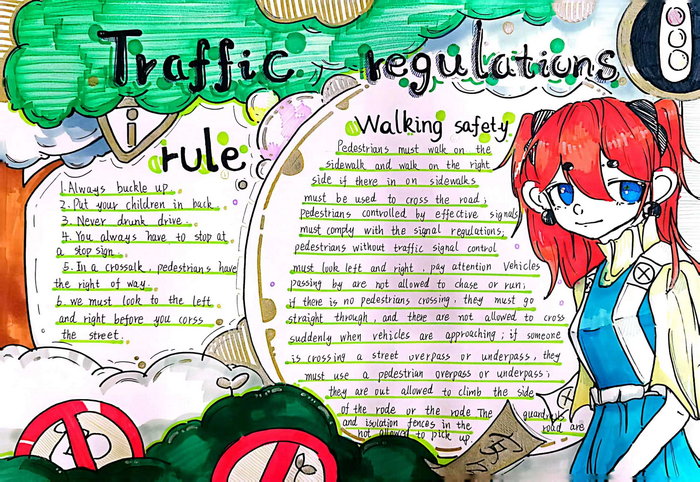 Traffic regulations
rule
1. Always buckle up.
2. Put your children in back.
3. Never drunk drive.
4. You always have to stop at
a stop sign.
5. In a crossalk, pedestrians have
the right of way.
6. we must look to the left
and right before you corss
the street.
Walking safety
Pedestrians must walk on the
sidewalk and walk on the right
side if there in on sidewalks
must be used to cross the road;
pedestrians controlled by effective signals
must comply with the signal regulations;
pedestrians without traffic signal control
must look left and right, pay attention Vehicles
passing by are not allowed to chase or run;
if there is no pedestrians crossing, they must go
straight through, and there are not allowed to cross
suddenly when vehicles are approaching; if someone
is crossing a street overpass or underpass, they
must use a pedestrian overpass or underpass;
they are out allowed to climb the side
of the rode or the rode The guardrails
and isolation fences in the road are
not allowed to pick up